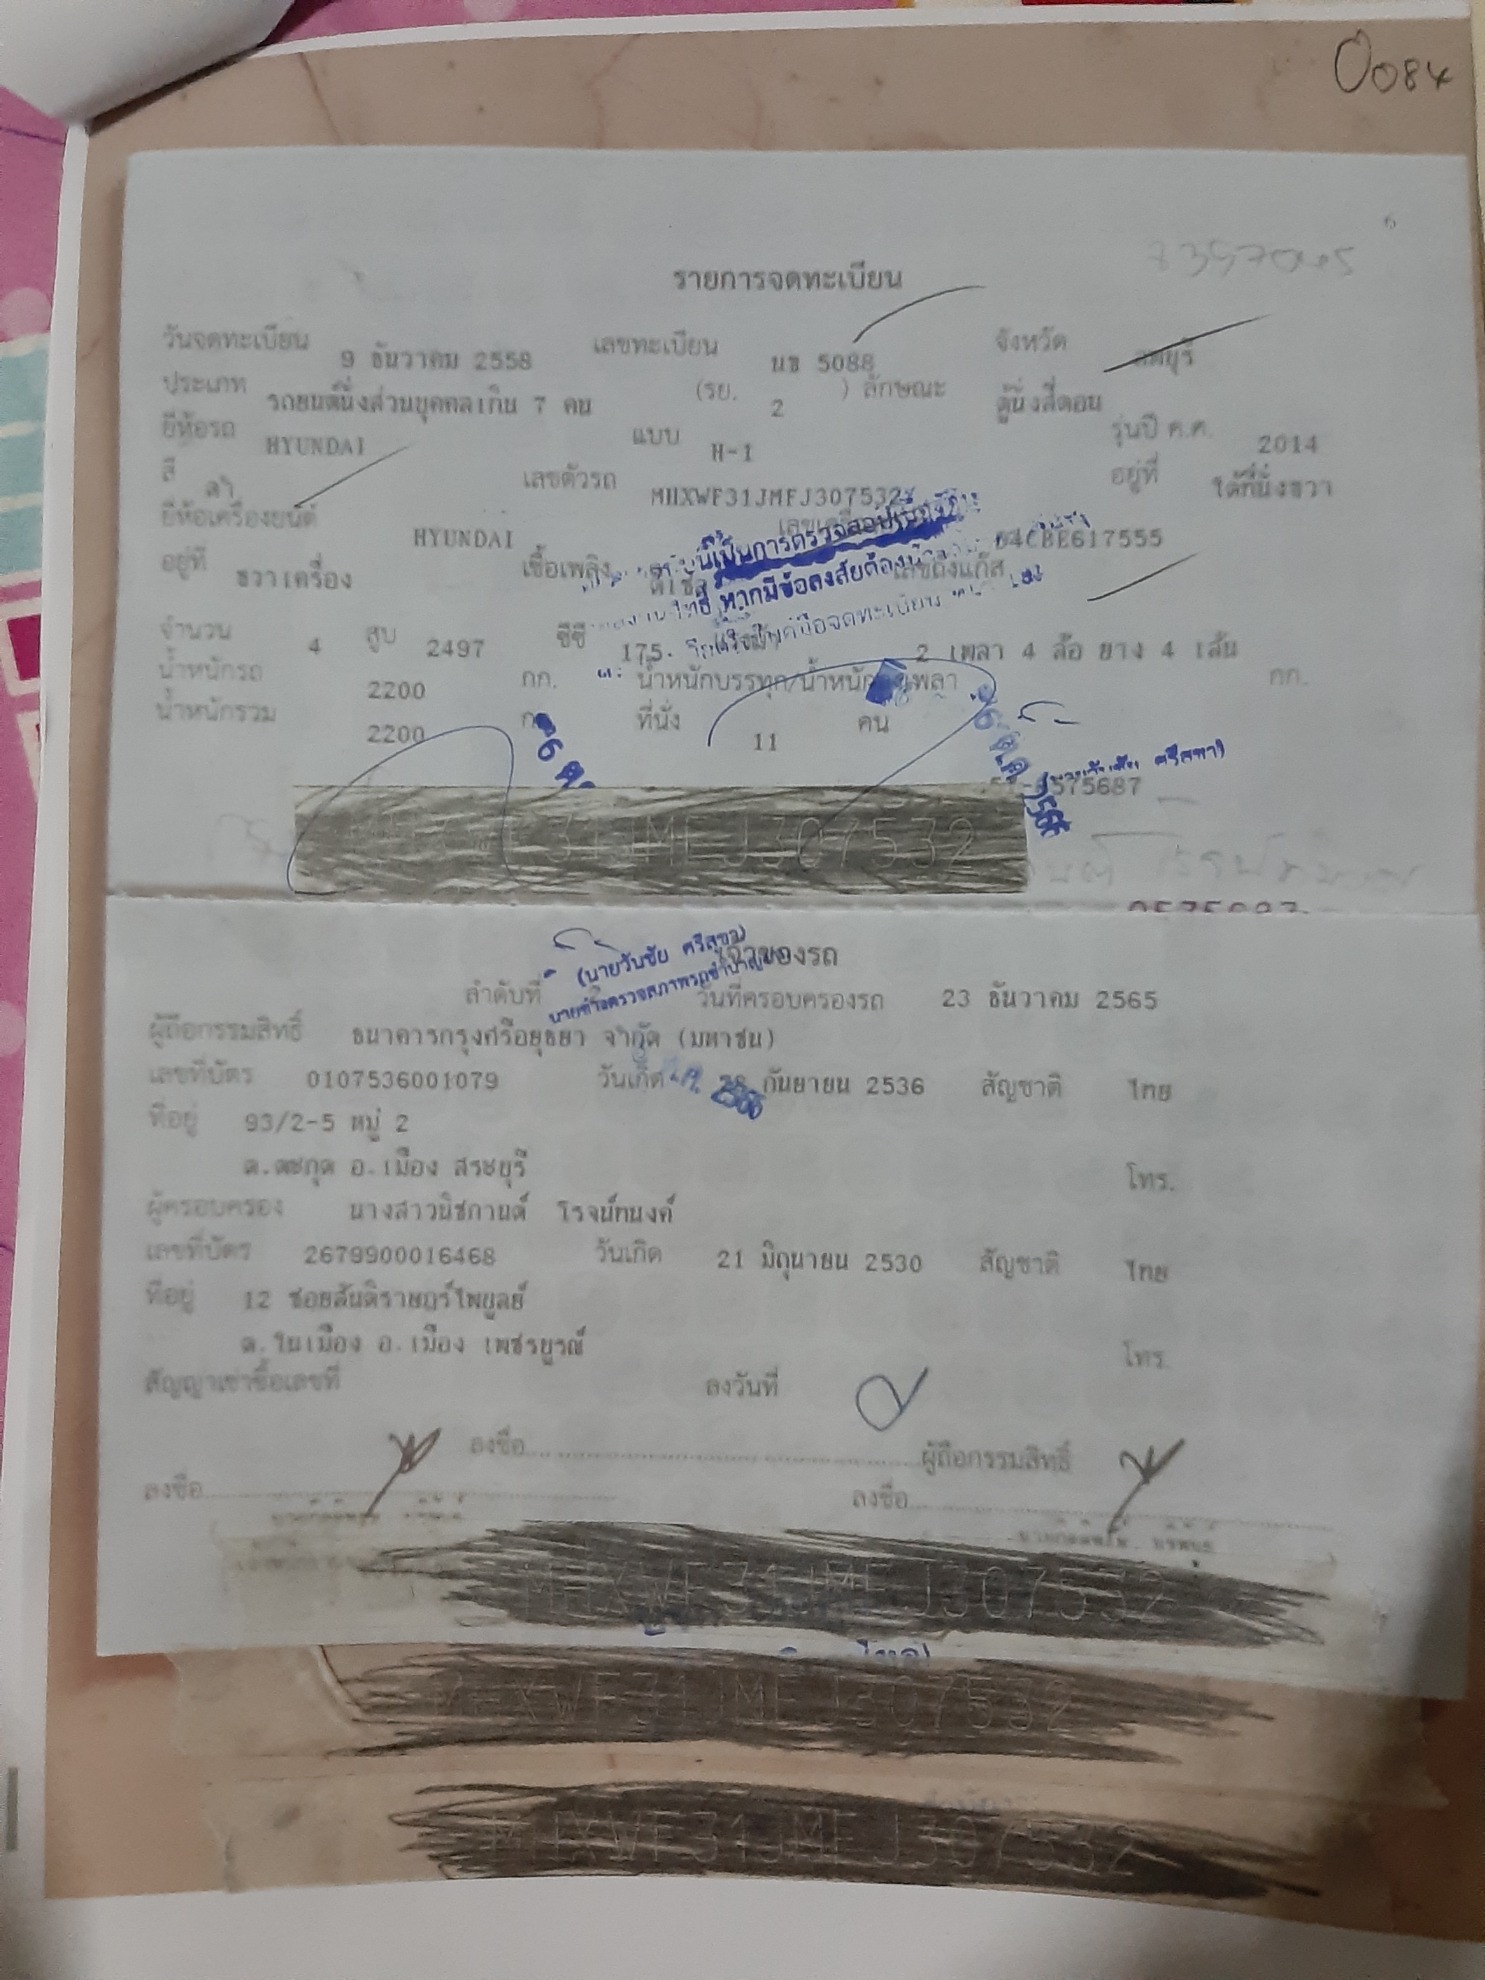 0084
6
รายการจดทะเบียน
วันจดทะเบียน 9 ธันวาคม 2558 เลขทะเบียน นข 5088 จังหวัด ลพบุรี
ประเภท รถยนต์นั่งส่วนบุคคลเกิน 7 คน (รย. 2 ) ลักษณะ ตู้นั่งสี่ตอน
ยี่ห้อรถ HYUNDAI แบบ H-1 รุ่นปี ค.ศ. 2014
สี ดำ เลขตัวรถ MHXWF31JMFJ307532 อยู่ที่ ใต้ที่นั่งขวา
ยี่ห้อเครื่องยนต์ HYUNDAI D4CBE617555
อยู่ที่ ขวาเครื่อง เชื้อเพลิง ดีเซล เลขถังแก๊ส
นี้เป็นการตรวจสอบ
หากมีข้อสงสัยต้อง
จำนวน 4 สูบ 2497 ซีซี 175 2 เพลา 4 ล้อ ยาง 4 เส้น
น้ำหนักรถ 2200 กก. น้ำหนักบรรทุก/น้ำหนักลงเพลา กก.
น้ำหนักรวม 2200 กก. ที่นั่ง 11 คน
6 ต.ค. 2566
575687
31JMFJ307532
เจ้าของรถ
(นายวันชัย ศรีสุขา)
นายช่างตรวจสภาพรถชำนาญ
ลำดับที่ วันที่ครอบครองรถ 23 ธันวาคม 2565
ผู้ถือกรรมสิทธิ์ ธนาคารกรุงศรีอยุธยา จำกัด (มหาชน)
เลขที่บัตร 0107536001079 วันเกิด 28 กันยายน 2536 สัญชาติ ไทย
ที่อยู่ 93/2-5 หมู่ 2
ต.ตะกุด อ.เมือง สระบุรี โทร.
ผู้ครอบครอง นางสาวนิชกานต์ โรจน์ทนงค์
เลขที่บัตร 2679900016468 วันเกิด 21 มิถุนายน 2530 สัญชาติ ไทย
ที่อยู่ 12 ซอยสันติราษฎร์ไพบูลย์
ต.ในเมือง อ.เมือง เพชรบูรณ์ โทร.
สัญญาเช่าซื้อเลขที่ ลงวันที่
ลงชื่อ ผู้ถือกรรมสิทธิ์
ลงชื่อ ลงชื่อ
MHXWF31JMFJ307532
MHXWF31JMFJ307532
MHXWF31JMFJ307532